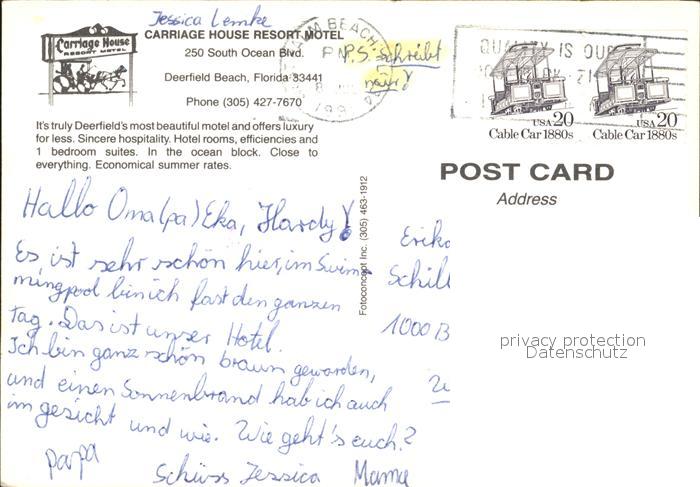 Jessica Lemke
Carriage House
RESORT MOTEL
CARRIAGE HOUSE RESORT MOTEL
250 South Ocean Blvd.
Deerfield Beach, Florida 33441
Phone (305) 427-7670
It's truly Deerfield's most beautiful motel and offers luxury
for less. Sincere hospitality. Hotel rooms, efficiencies and
1 bedroom suites. In the ocean block. Close to
everything. Economical summer rates.
P.S. schreibt
BEACH
PM
QUALITY IS OUR
USA 20
Cable Car 1880s
USA 20
Cable Car 1880s
POST CARD
Address
Fotoconcept Inc. (305) 463-1912
Hallo Oma(pa) Eka, Hardy!
Es ist sehr schön hier, im Swim
mingpool bin ich fast den ganzen
Tag. Das ist unser Hotel.
Ich bin ganz schön braun geworden,
und einen Sonnenbrand hab ich auch
im gesicht und wie. Wie geht's euch?
papa
Schüss Jessica Mama
Erika
Schill
1000 B
privacy protection
Datenschutz